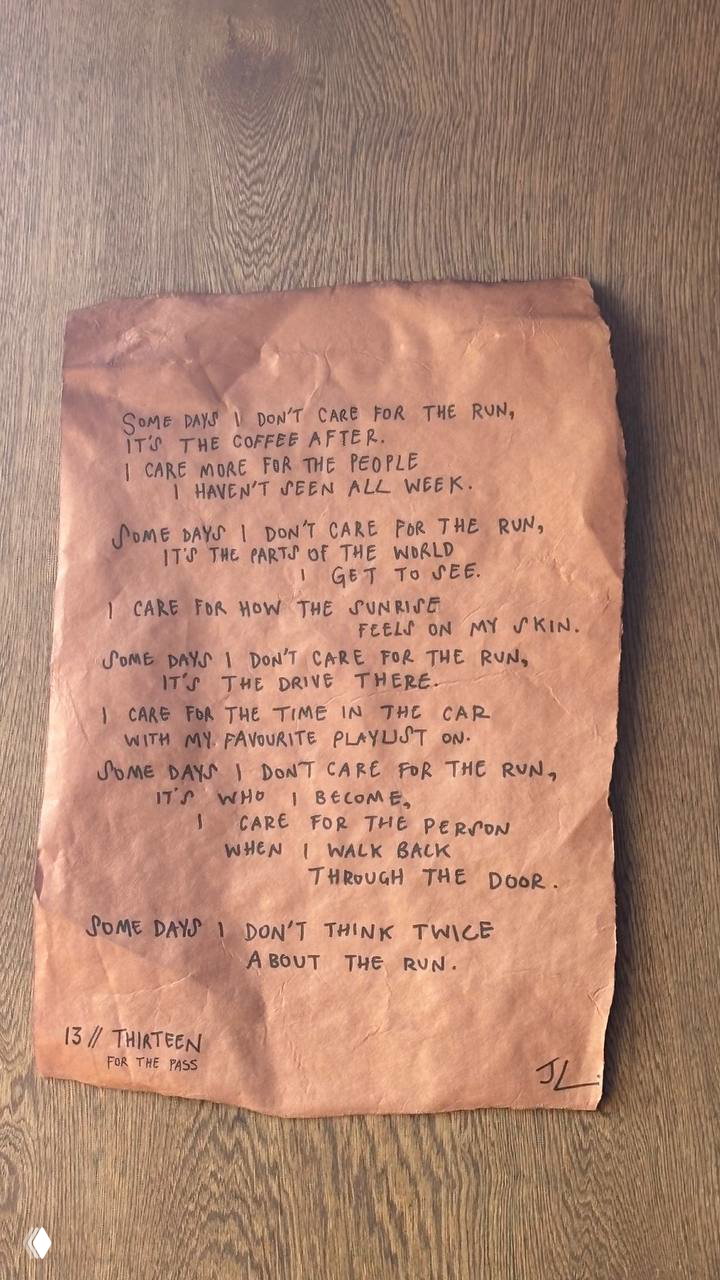 SOME DAYS I DON'T CARE FOR THE RUN,
IT'S THE COFFEE AFTER.
I CARE MORE FOR THE PEOPLE
I HAVEN'T SEEN ALL WEEK.
SOME DAYS I DON'T CARE FOR THE RUN,
IT'S THE PARTS OF THE WORLD
I GET TO SEE.
I CARE FOR HOW THE SUNRISE
FEELS ON MY SKIN.
SOME DAYS I DON'T CARE FOR THE RUN,
IT'S THE DRIVE THERE.
I CARE FOR THE TIME IN THE CAR
WITH MY FAVOURITE PLAYLIST ON.
SOME DAYS I DON'T CARE FOR THE RUN,
IT'S WHO I BECOME,
I CARE FOR THE PERSON
WHEN I WALK BACK
THROUGH THE DOOR.
SOME DAYS I DON'T THINK TWICE
ABOUT THE RUN.
13 // THIRTEEN
FOR THE PASS
JL